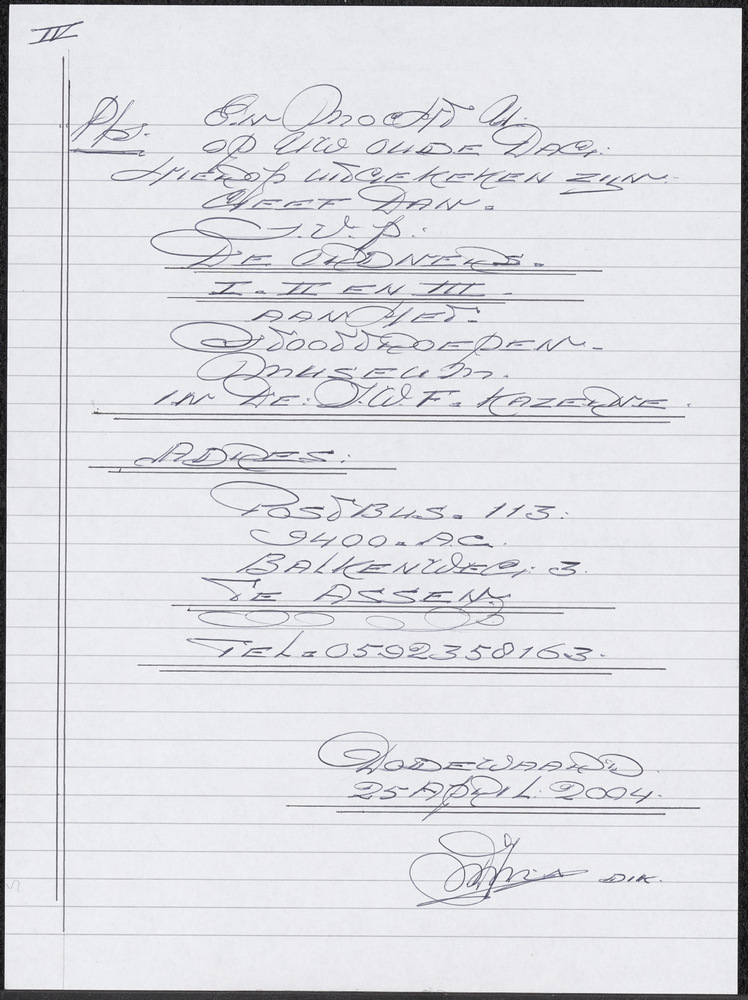 IV
P/s. En mocht U.
op uw oude dag.
hierop uitgekeken zijn.
Geef dan.
S.V.P.
De ordners.
I. II en III.
aan het.
Stoottroepen.
museum.
in de: J.W.F. Kazerne.
Adres:
Postbus. 113.
9400. A.C.
Balkenweg. 3.
Te Assen
Tel. 0592358163.
Dodewaard.
25 April. 2004.
Dik.